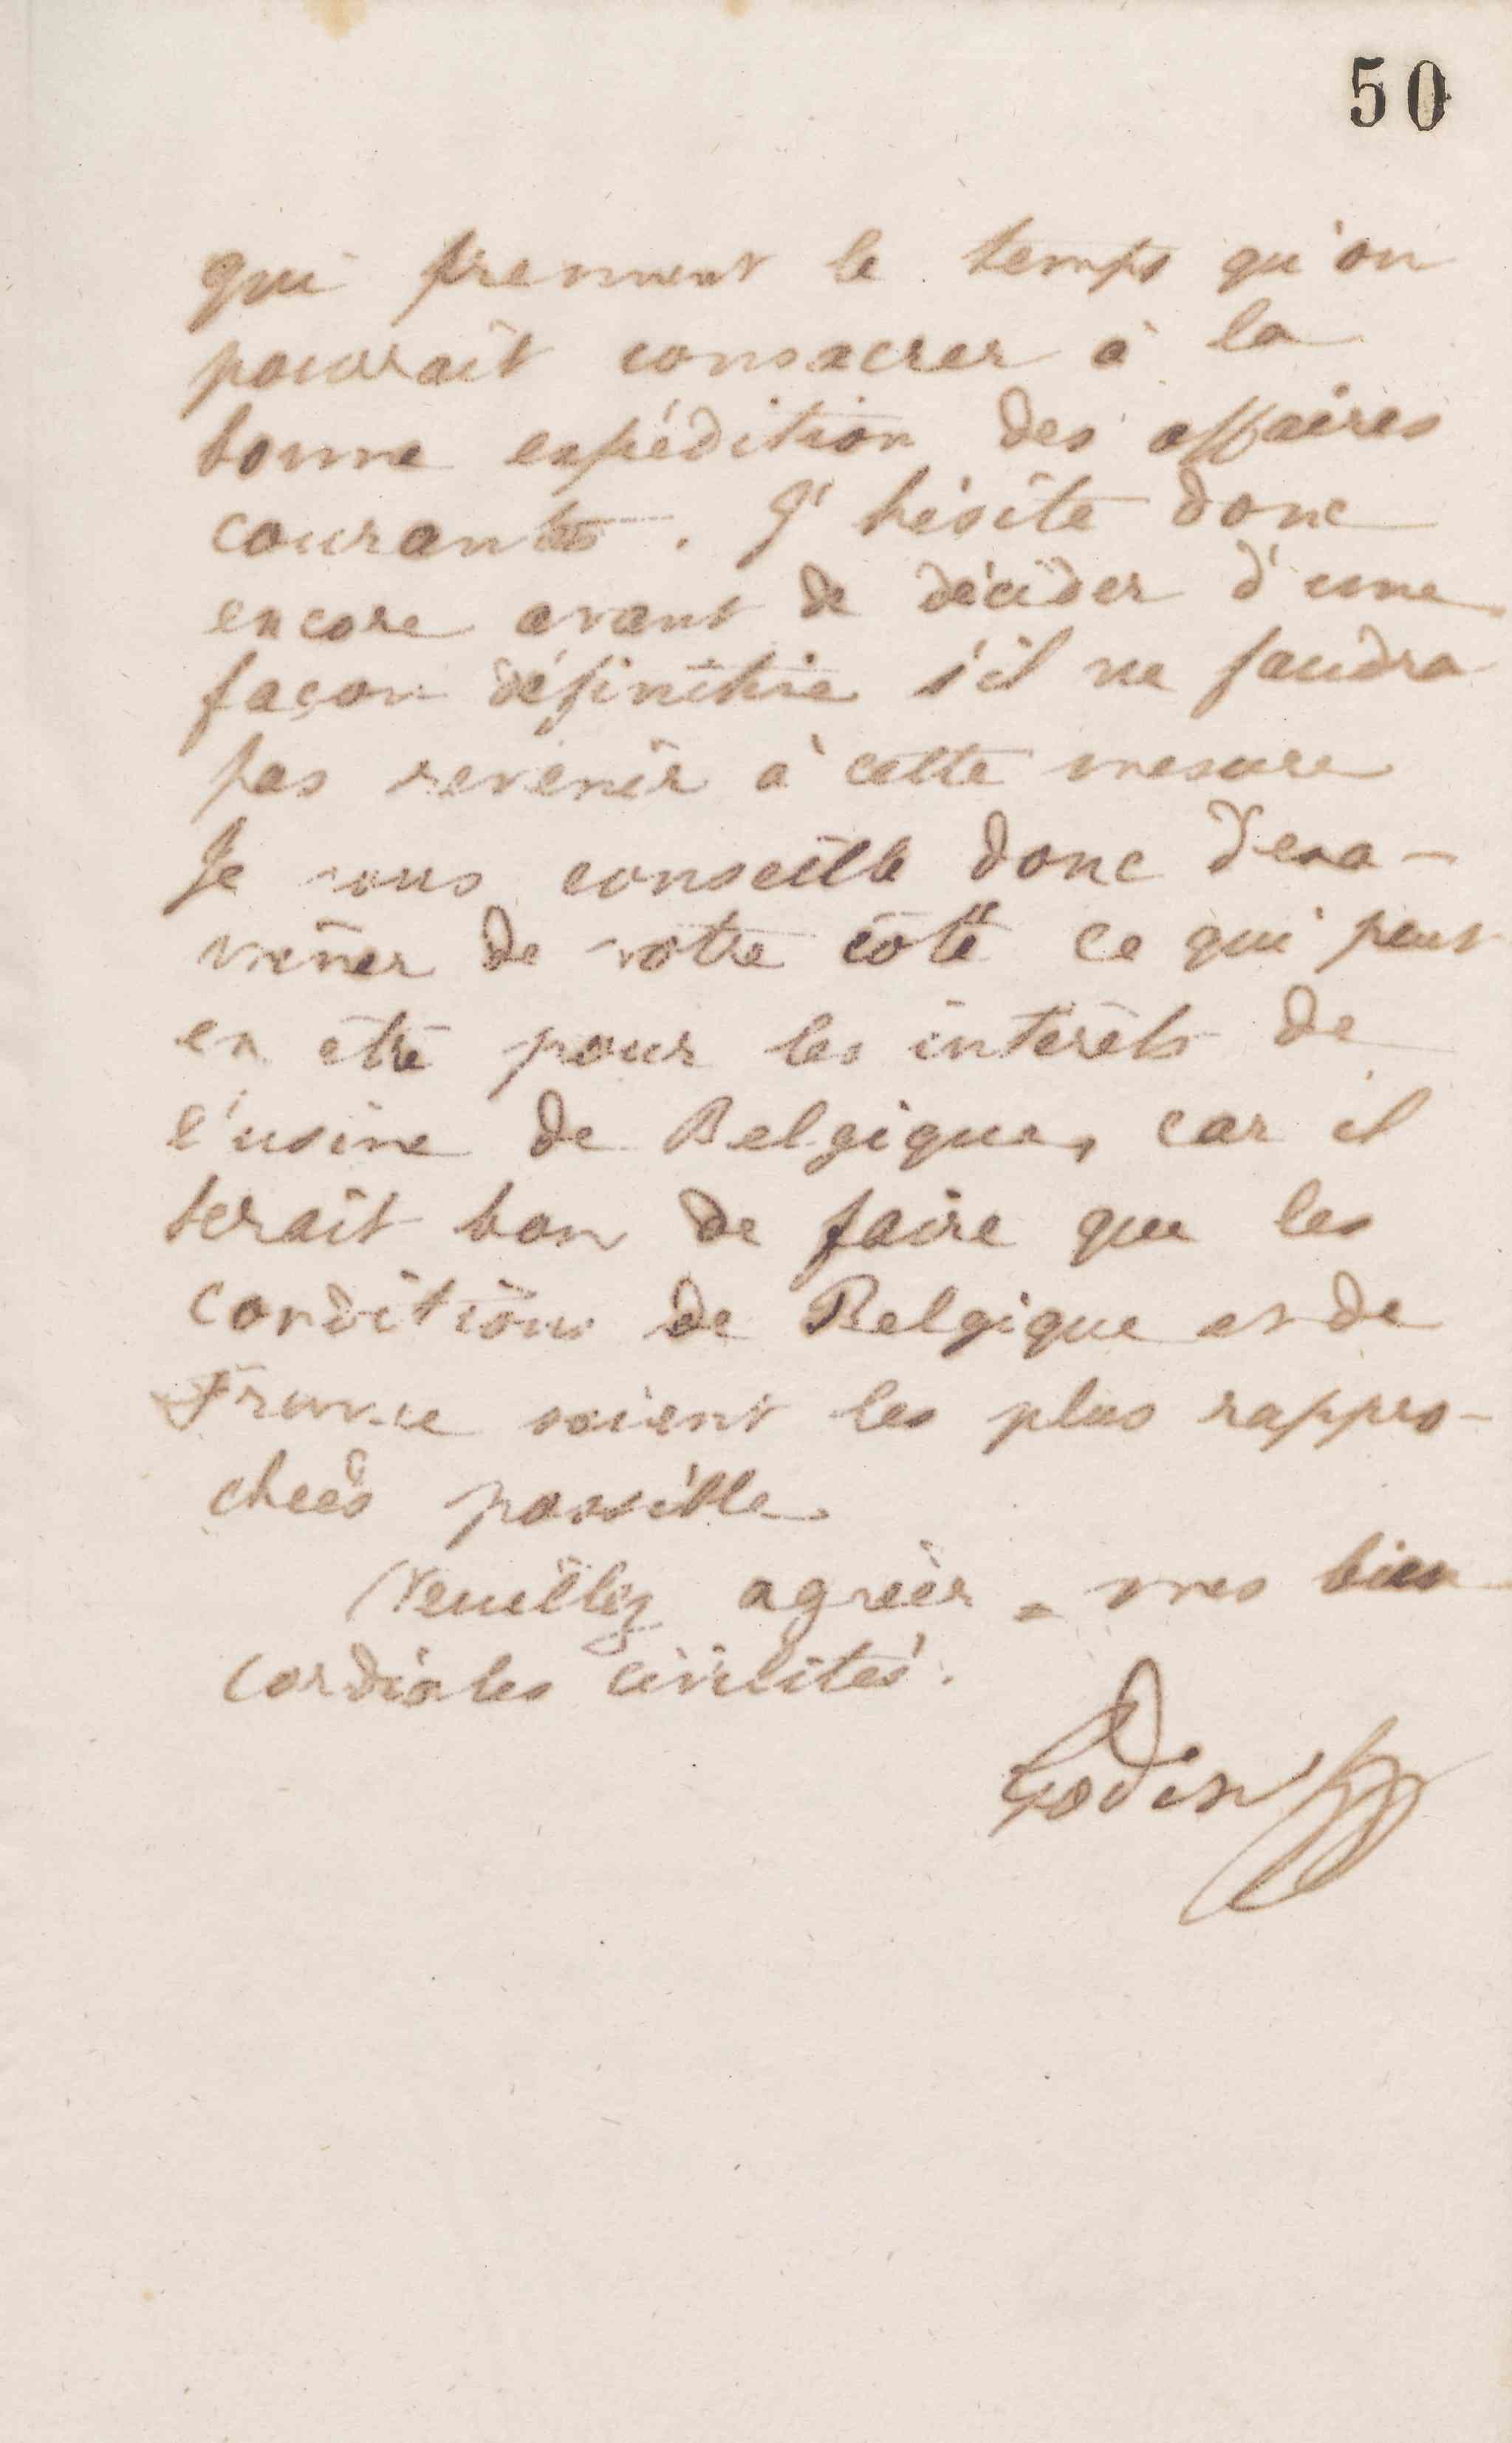 50
qui prennent le temps qu'on
pourrait consacrer à la
bonne expédition des affaires
courantes. J'hésite donc
encore avant de décider d'une
façon définitive s'il ne faudra
pas revenir à cette mesure
Je vous conseille donc d'exa-
miner de votre côté ce qui peut
en être pour les intérêts de
l'usine de Belgique, car il
serait bon de faire que les
conditions de Belgique et de
France soient les plus rappro-
chées possible
Veuillez agréer = mes bien
cordiales civilités.
Godin